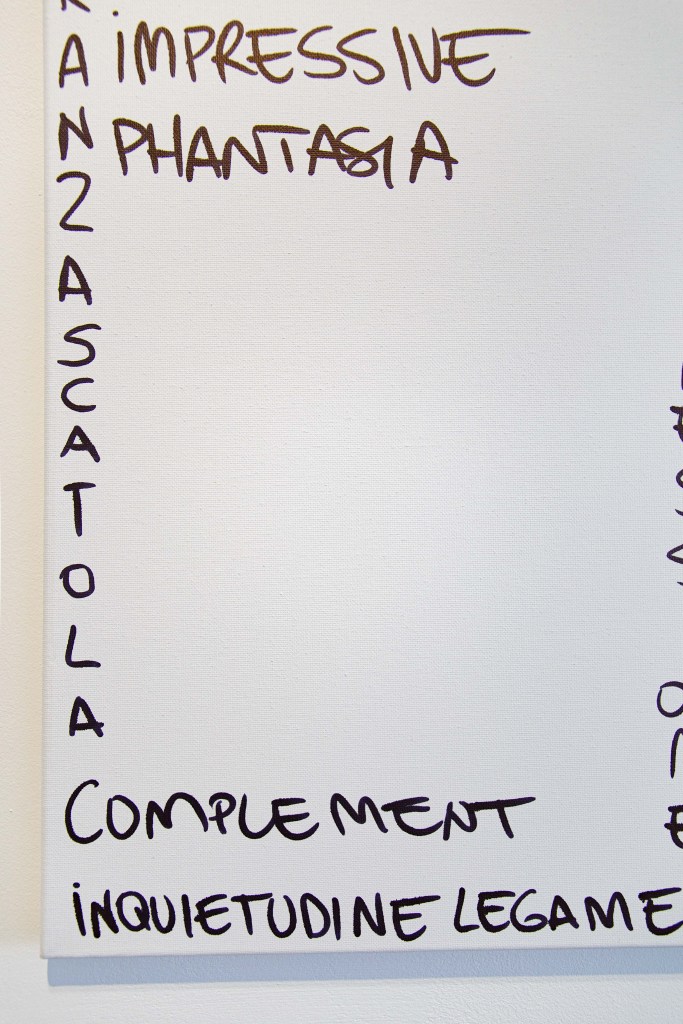 iMPRESSIVE
PHANTASIA
ANZASCATOLA
COMPLEMENT
iNQUIETUDINE LEGAME